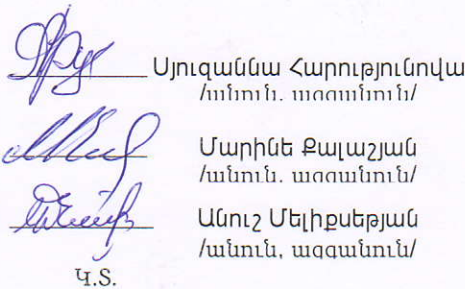 Սյուզաննա Հարությունովա
/անուն, ազգանուն/
Մարինե Քալաշյան
/անուն, ազգանուն/
Անուշ Մելիքսեթյան
/անուն, ազգանուն/
Կ.Տ.